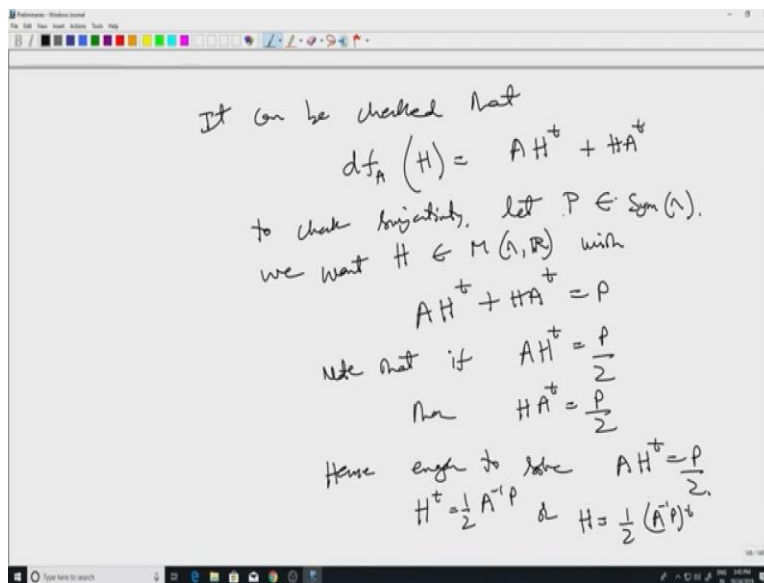 Preliminaries - Windows Journal
File Edit View Insert Actions Tools Help
It can be checked that
df_A (H) = AH^t + HA^t
to check surjectivity, let P ∈ Sym(n).
we want H ∈ M(n, ℝ) with
AH^t + HA^t = P
Note that if AH^t = P/2
then HA^t = P/2
Hence enough to solve AH^t = P/2.
H^t = 1/2 A^-1 P or H = 1/2 (A^-1 P)^t
Type here to search